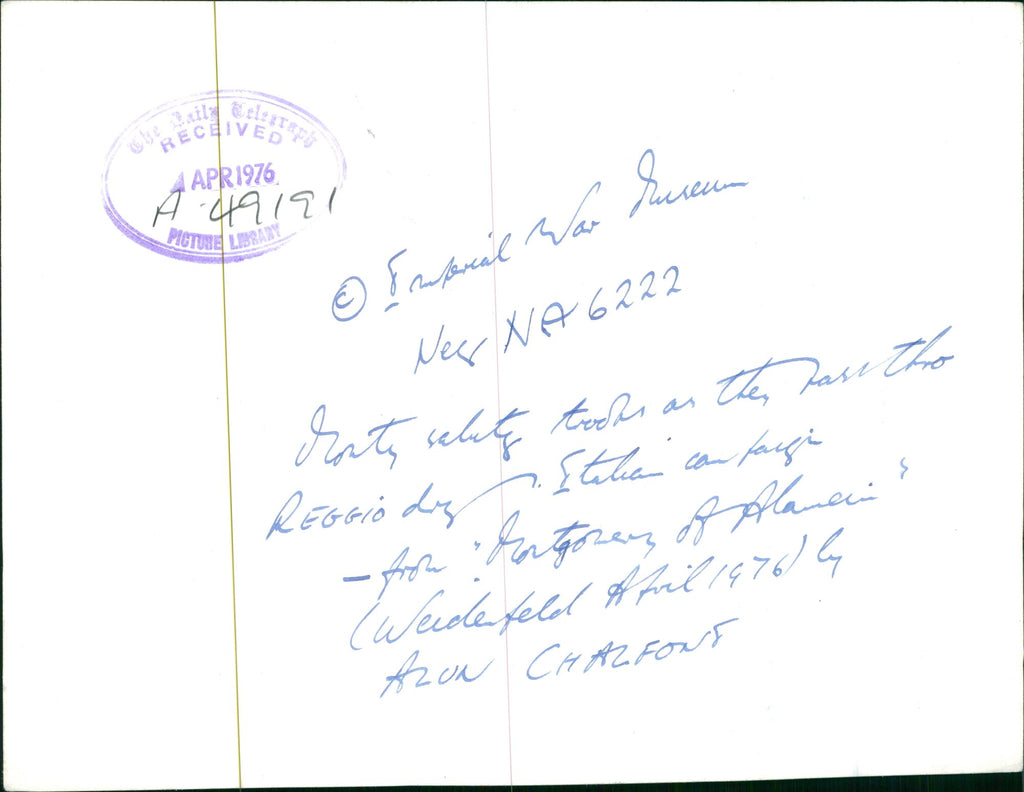 The Daily Telegraph
RECEIVED
1 APR 1976
A-49191
PICTURE LIBRARY
© Imperial War Museum
Neg NA 6222
Monty saluting troops as they pass thro
REGGIO drg Italian campaign
— from "Montgomery of Alamein"
(Weidenfeld April 1976) by
ALUN CHALFONT